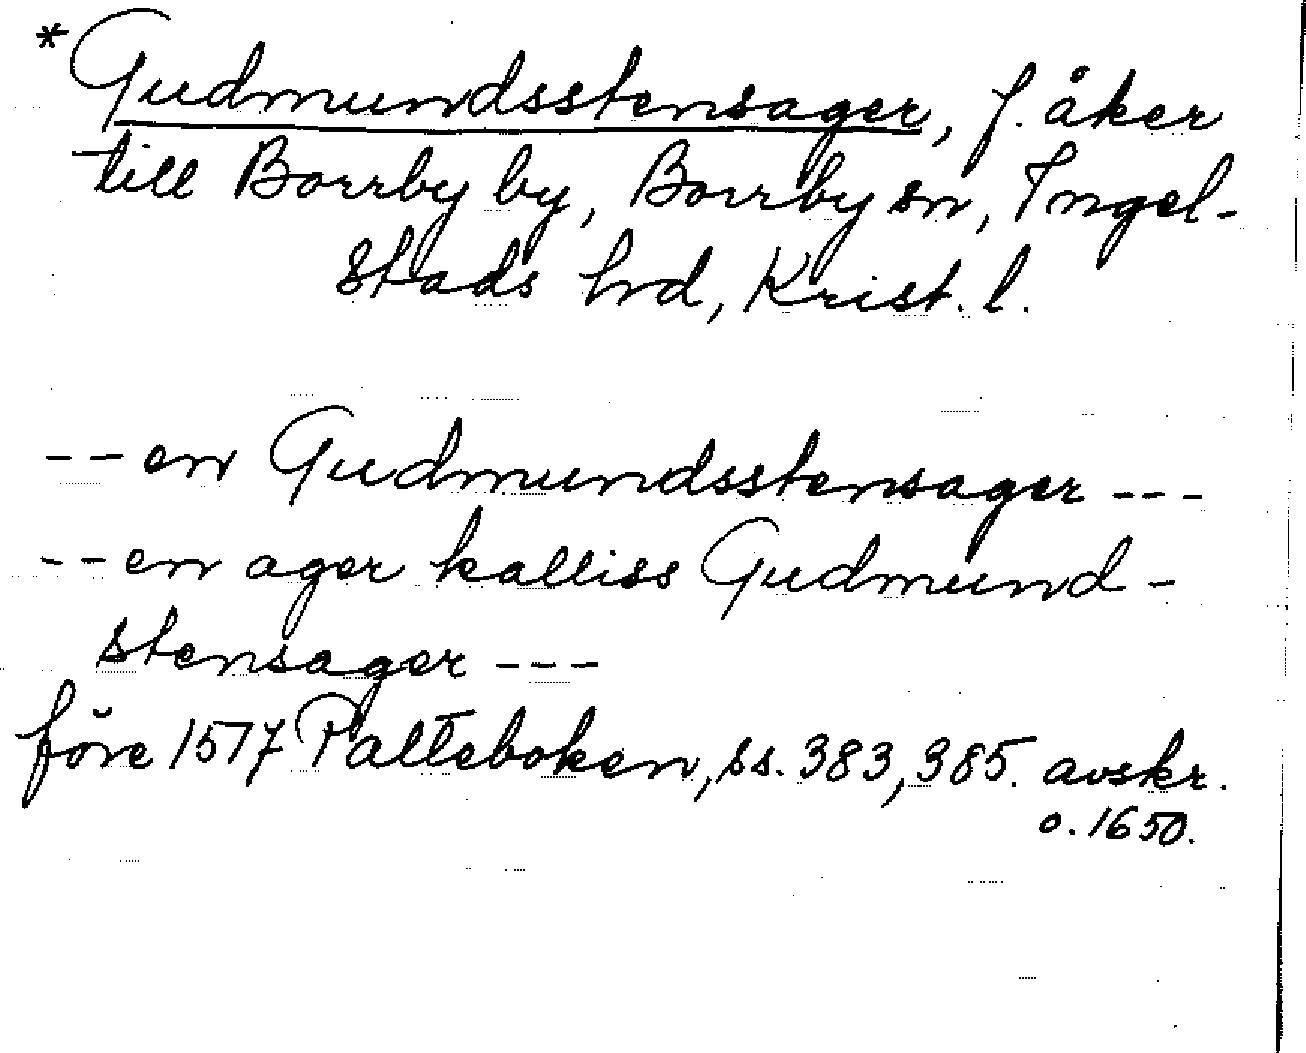 *Gudmundsstensager, f. åker
till Borrby by, Borrby sn, Ingel-
stads hrd, Krist. l.
-- en Gudmundsstensager ---
-- en ager kalliss Gudmund-
stensager ---
före 1577 Palteboken, ss. 383, 385. avskr.
o. 1650.